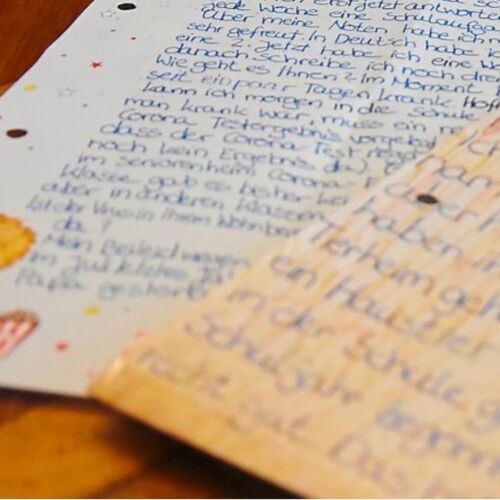 erst jetzt antworte
jede Woche eine Schulaufga
Über meine Noten habe ich m
sehr gefreut. In Deutsch habe i
eine 2. Jetzt habe ich eine Wo
danach schreibe ich noch drei
Wie geht es Ihnen? Im Moment
seit ein paar Tagen krank. Hoff
kann ich morgen in die Schule
man krank war, muss ein ne
Corona Testergebnis vorgelegt
dass der Corona Test nega
noch kein Ergebnis da),
im Seniorenheim Corona-
Klasse gab es bisher kei
aber in anderen Klassen
Ist der Virus in Ihrem Wohnber
da?
Mein Beileid wegen
im Juli letztes Ja
Papa gestorb
haben
Tierheim geh
ein Haustier
in der Schule g
Schuljahr begonn
recht gut. Das